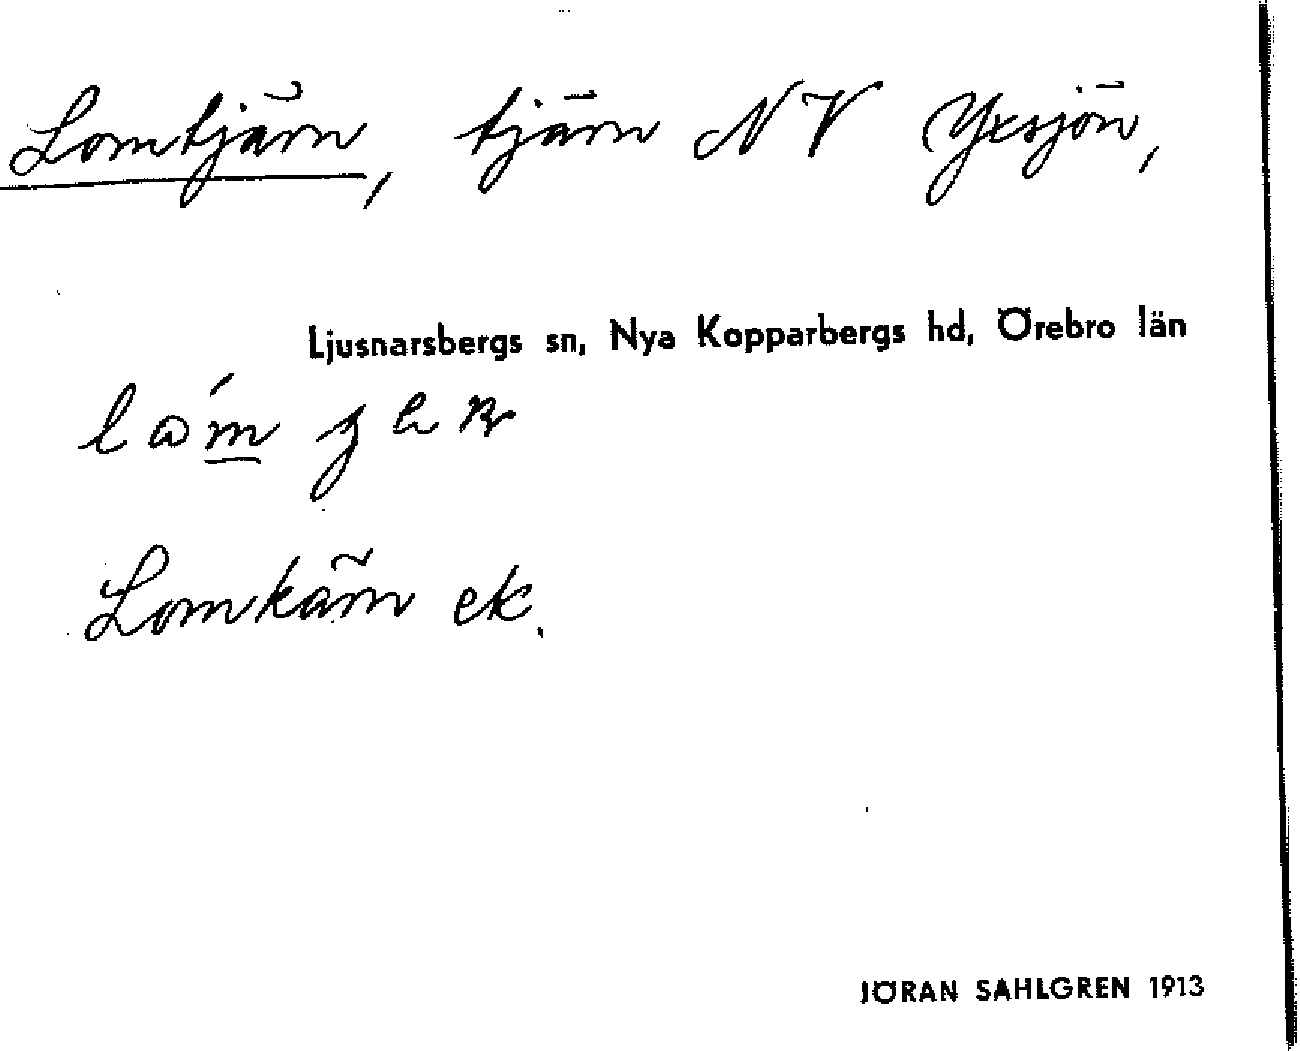 Lomtjärn, tjärn NV Yxsjön,
Ljusnarsbergs sn, Nya Kopparbergs hd, Örebro län
Lomkärn ek.
JÖRAN SAHLGREN 1913